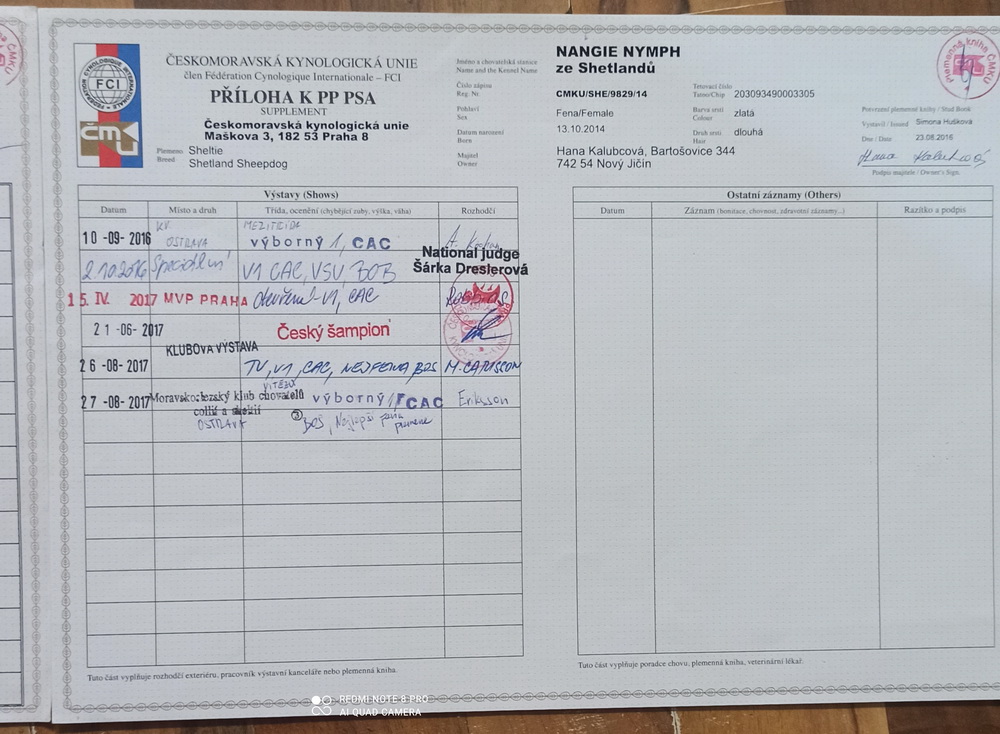 FCI
ČMKU
ČESKOMORAVSKÁ KYNOLOGICKÁ UNIE
člen Fédération Cynologique Internationale – FCI
PŘÍLOHA K PP PSA
SUPPLEMENT
Českomoravská kynologická unie
Maškova 3, 182 53 Praha 8
Plemeno
Breed
Sheltie
Shetland Sheepdog
Jméno a chovatelská stanice
Name and the Kennel Name
NANGIE NYMPH
ze Shetlandů
Číslo zápisu
Reg. Nr.
CMKU/SHE/9829/14
Tetovací číslo
Tatoo/Chip
203093490003305
Pohlaví
Sex
Fena/Female
Barva srsti
Colour
zlatá
Datum narození
Born
13.10.2014
Druh srsti
Hair
dlouhá
Majitel
Owner
Hana Kalubcová, Bartošovice 344
742 54 Nový Jičín
Plemenná kniha ČMKU
Potvrzení plemenné knihy / Stud Book
Vystavil / Issued Simona Hušková
Dne / Date 23.08.2016
Hana Kalubcová
Podpis majitele / Owner's Sign.
Výstavy (Shows)
Datum Místo a druh Třída, ocenění (chybějící zuby, výška, váha) Rozhodčí
10 -09- 2016 KV OSTRAVA MEZITŘÍDA výborný 1, CAC
National judge
Šárka Dreslerová
2.10.2016 Speciální V1 CAC, VSV, BOB
15. IV. 2017 MVP PRAHA otevřená V1, CAC
21 -06- 2017 Český šampion
KLUBOVA VÝSTAVA
26 -08- 2017 TV, V1, CAC, NEJ FENA, BOS M. CARLSSON
27 -08- 2017 Moravskoslezský klub chovatelů
collií a sheltií
OSTRAVA
VÍTĚZŮ
výborný 1, CAC Eriksson
BOS, Nejlepší fena plemene
Tuto část vyplňuje rozhodčí exteriéru, pracovník výstavní kanceláře nebo plemenná kniha.
Ostatní záznamy (Others)
Datum Záznam (bonitace, chovnost, zdravotní záznamy...) Razítko a podpis
Tuto část vyplňuje poradce chovu, plemenná kniha, veterinární lékař.
REDMI NOTE 8 PRO
AI QUAD CAMERA